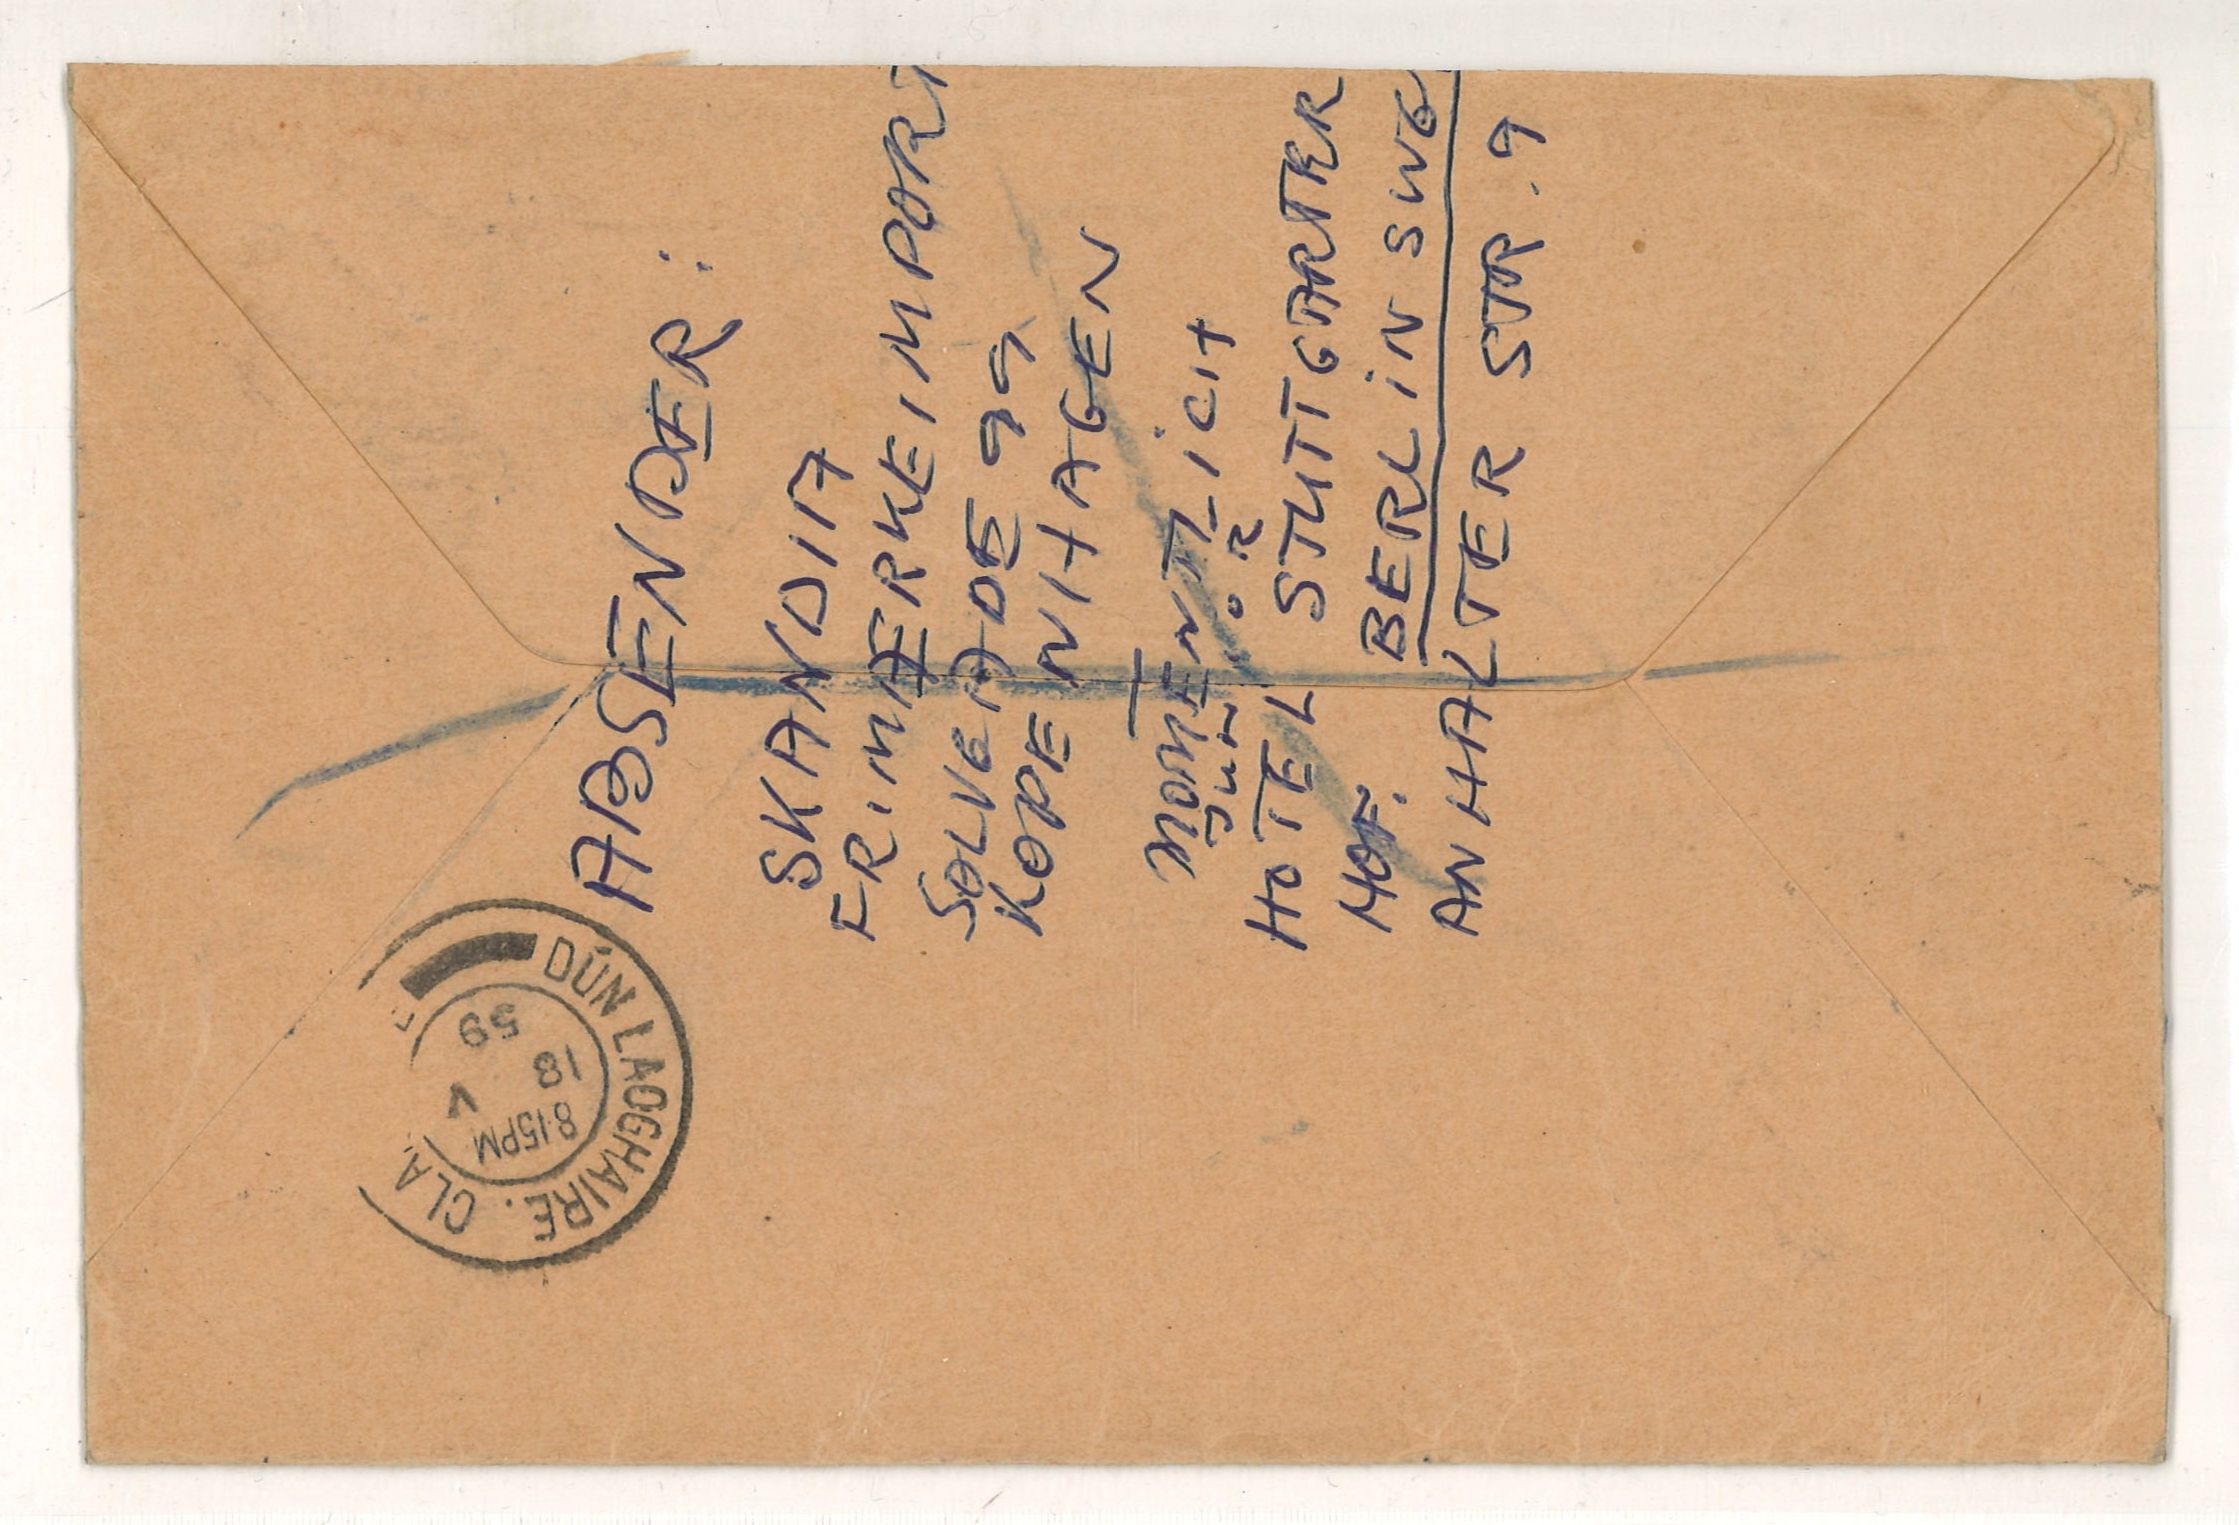 ABSENDER:
SKANDIA
FRIMÆRKEIMPORT
SOLVGADE 99
KOPENHAGEN
MOMENTLICH
HOTEL STUTTGARTER
HOF. BERLIN SW6
ANHALTER STR. 9
DÚN LAOGHAIRE. CLA
8.15PM
18 V
59